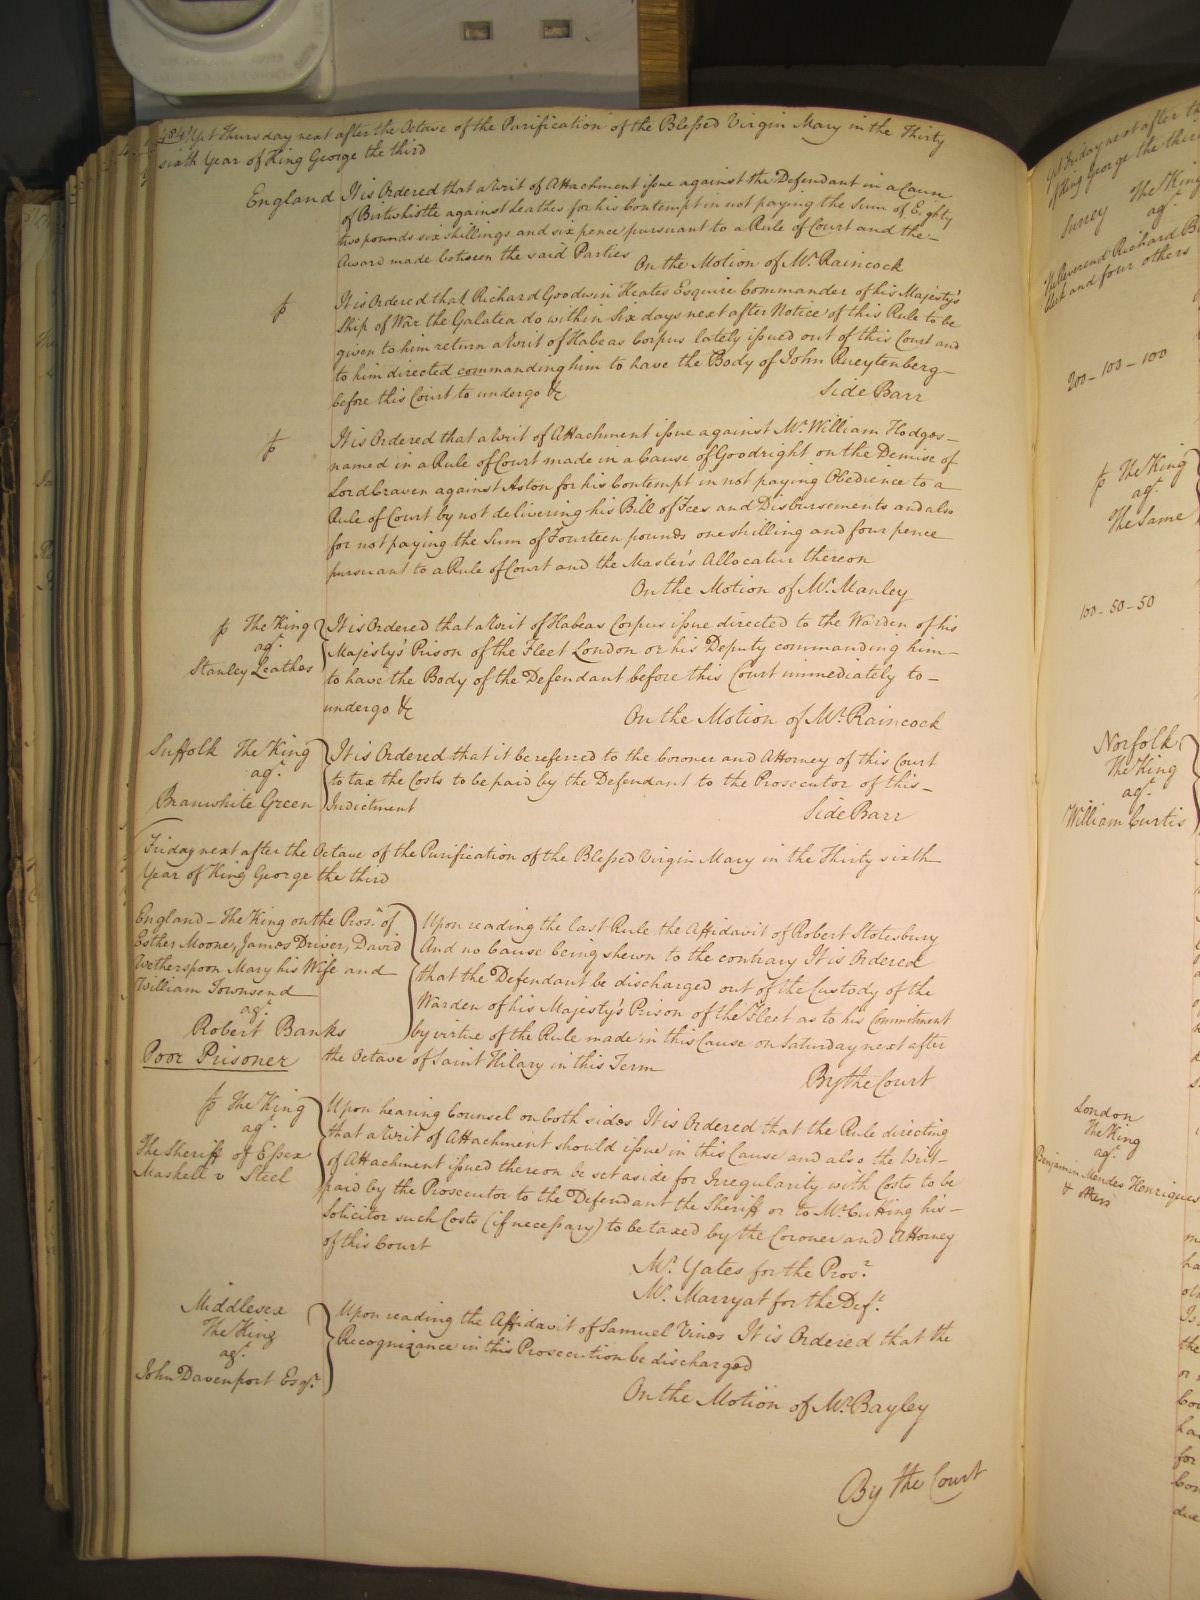 484 Yet Thursday next after the Octave of the Purification of the Blessed Virgin Mary in the Thirty
sixth Year of King George the third
England It is Ordered that a Writ of Attachment issue against the Defendant in a Cause
of Birtwhistle against Leathes for his Contempt in not paying the Sum of Eighty
two pounds six shillings and six pence pursuant to a Rule of Court and the
Award made between the said Parties On the Motion of Mr. Raincock
It is Ordered that Richard Goodwin Keates Esquire Commander of his Majesty's
Ship of War the Galatea do within Six days next after Notice of this Rule to be
given to him return a Writ of Habeas Corpus lately issued out of this Court and
to him directed commanding him to have the Body of John
before this Court to undergo &c Side Barr
It is Ordered that a Writ of Attachment issue against Mr. William Hodges
named in a Rule of Court made in a Cause of Goodright on the Demise of
Lord Craven against Aston for his Contempt in not paying Obedience to a
Rule of Court by not delivering his Bill of Fees and Disbursements and also
for not paying the Sum of Fourteen pounds one shilling and four pence
pursuant to a Rule of Court and the Master's Allocatur thereon
On the Motion of Mr. Manley
The King
agt.
Stanley Leathes
It is Ordered that a Writ of Habeas Corpus issue directed to the Warden of his
Majesty's Prison of the Fleet London or his Deputy commanding him
to have the Body of the Defendant before this Court immediately to
undergo &c On the Motion of Mr. Raincock
Suffolk The King
agt.
Branwhite Green
It is Ordered that it be referred to the Coroner and Attorney of this Court
to tax the Costs to be paid by the Defendant to the Prosecutor of this
Indictment Side Barr
Friday next after the Octave of the Purification of the Blessed Virgin Mary in the Thirty sixth
Year of King George the third
England - The King on the Pros.n of
Esther Moone, James Driver, David
Wetherspoon Mary his Wife and
William Townsend
agt.
Robert Banks
Poor Prisoner
Upon reading the last Rule the Affidavit of Robert Stotesbury
And no Cause being shewn to the contrary It is Ordered
that the Defendant be discharged out of the Custody of the
Warden of his Majesty's Prison of the Fleet as to his Commitment
by virtue of the Rule made in this Cause on Saturday next after
the Octave of Saint Hilary in this Term
By the Court
The King
agt.
The Sheriff of Essex
Maskell v Steel
Upon hearing Counsel on both sides It is Ordered that the Rule directing
that a Writ of Attachment should issue in this Cause and also the Writ
of Attachment issued thereon be set aside for Irregularity with Costs to be
paid by the Prosecutor to the Defendant the Sheriff or to Mr. Cutting his
Solicitor such Costs (if necessary) to be taxed by the Coroner and Attorney
of this Court
Mr. Yates for the Pros.r
Mr. Marryat for the Def.t
Middlesex
The King
agt.
John Davenport Esqr.
Upon reading the Affidavit of Samuel Vines It is Ordered that the
Recognizance in this Prosecution be discharged
On the Motion of Mr. Bayley
By the Court
Yet Friday next after
of King George the third
Surrey The King
agt.
Reverend Richard
and four others
200-100-100
The King
agt.
The Same
100-50-50
Norfolk
The King
agt.
William Curtis
London
The King
agt.
Benjamin Mendes Henriques
& others